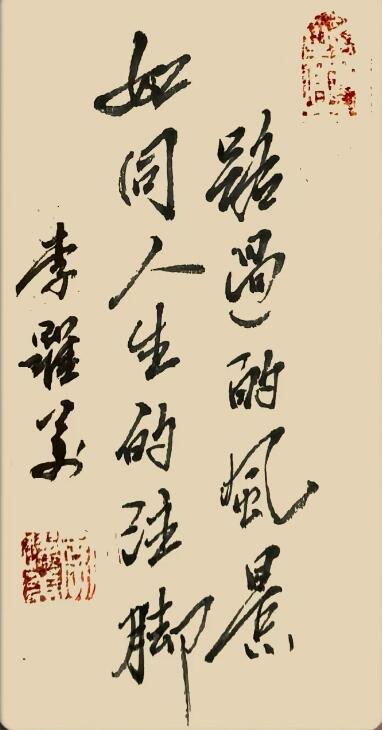 路過的風景
如同人生的注脚
李躍